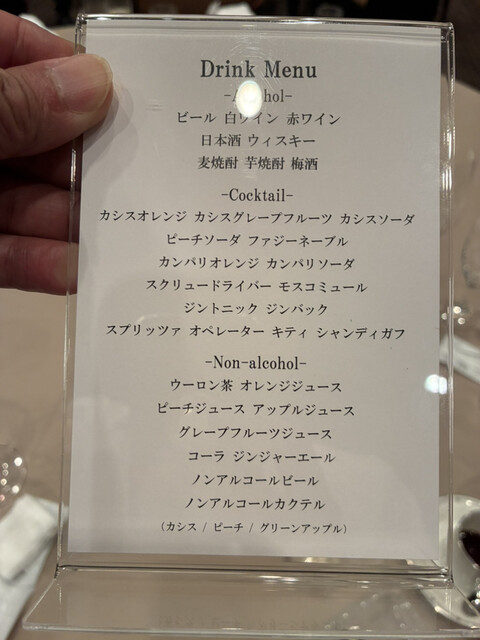 Drink Menu
-Alcohol-
ビール 白ワイン 赤ワイン
日本酒 ウィスキー
麦焼酎 芋焼酎 梅酒
-Cocktail-
カシスオレンジ カシスグレープフルーツ カシスソーダ
ピーチソーダ ファジーネーブル
カンパリオレンジ カンパリソーダ
スクリュードライバー モスコミュール
ジントニック ジンバック
スプリッツァ オペレーター キティ シャンディガフ
-Non-alcohol-
ウーロン茶 オレンジジュース
ピーチジュース アップルジュース
グレープフルーツジュース
コーラ ジンジャーエール
ノンアルコールビール
ノンアルコールカクテル
(カシス / ピーチ / グリーンアップル)